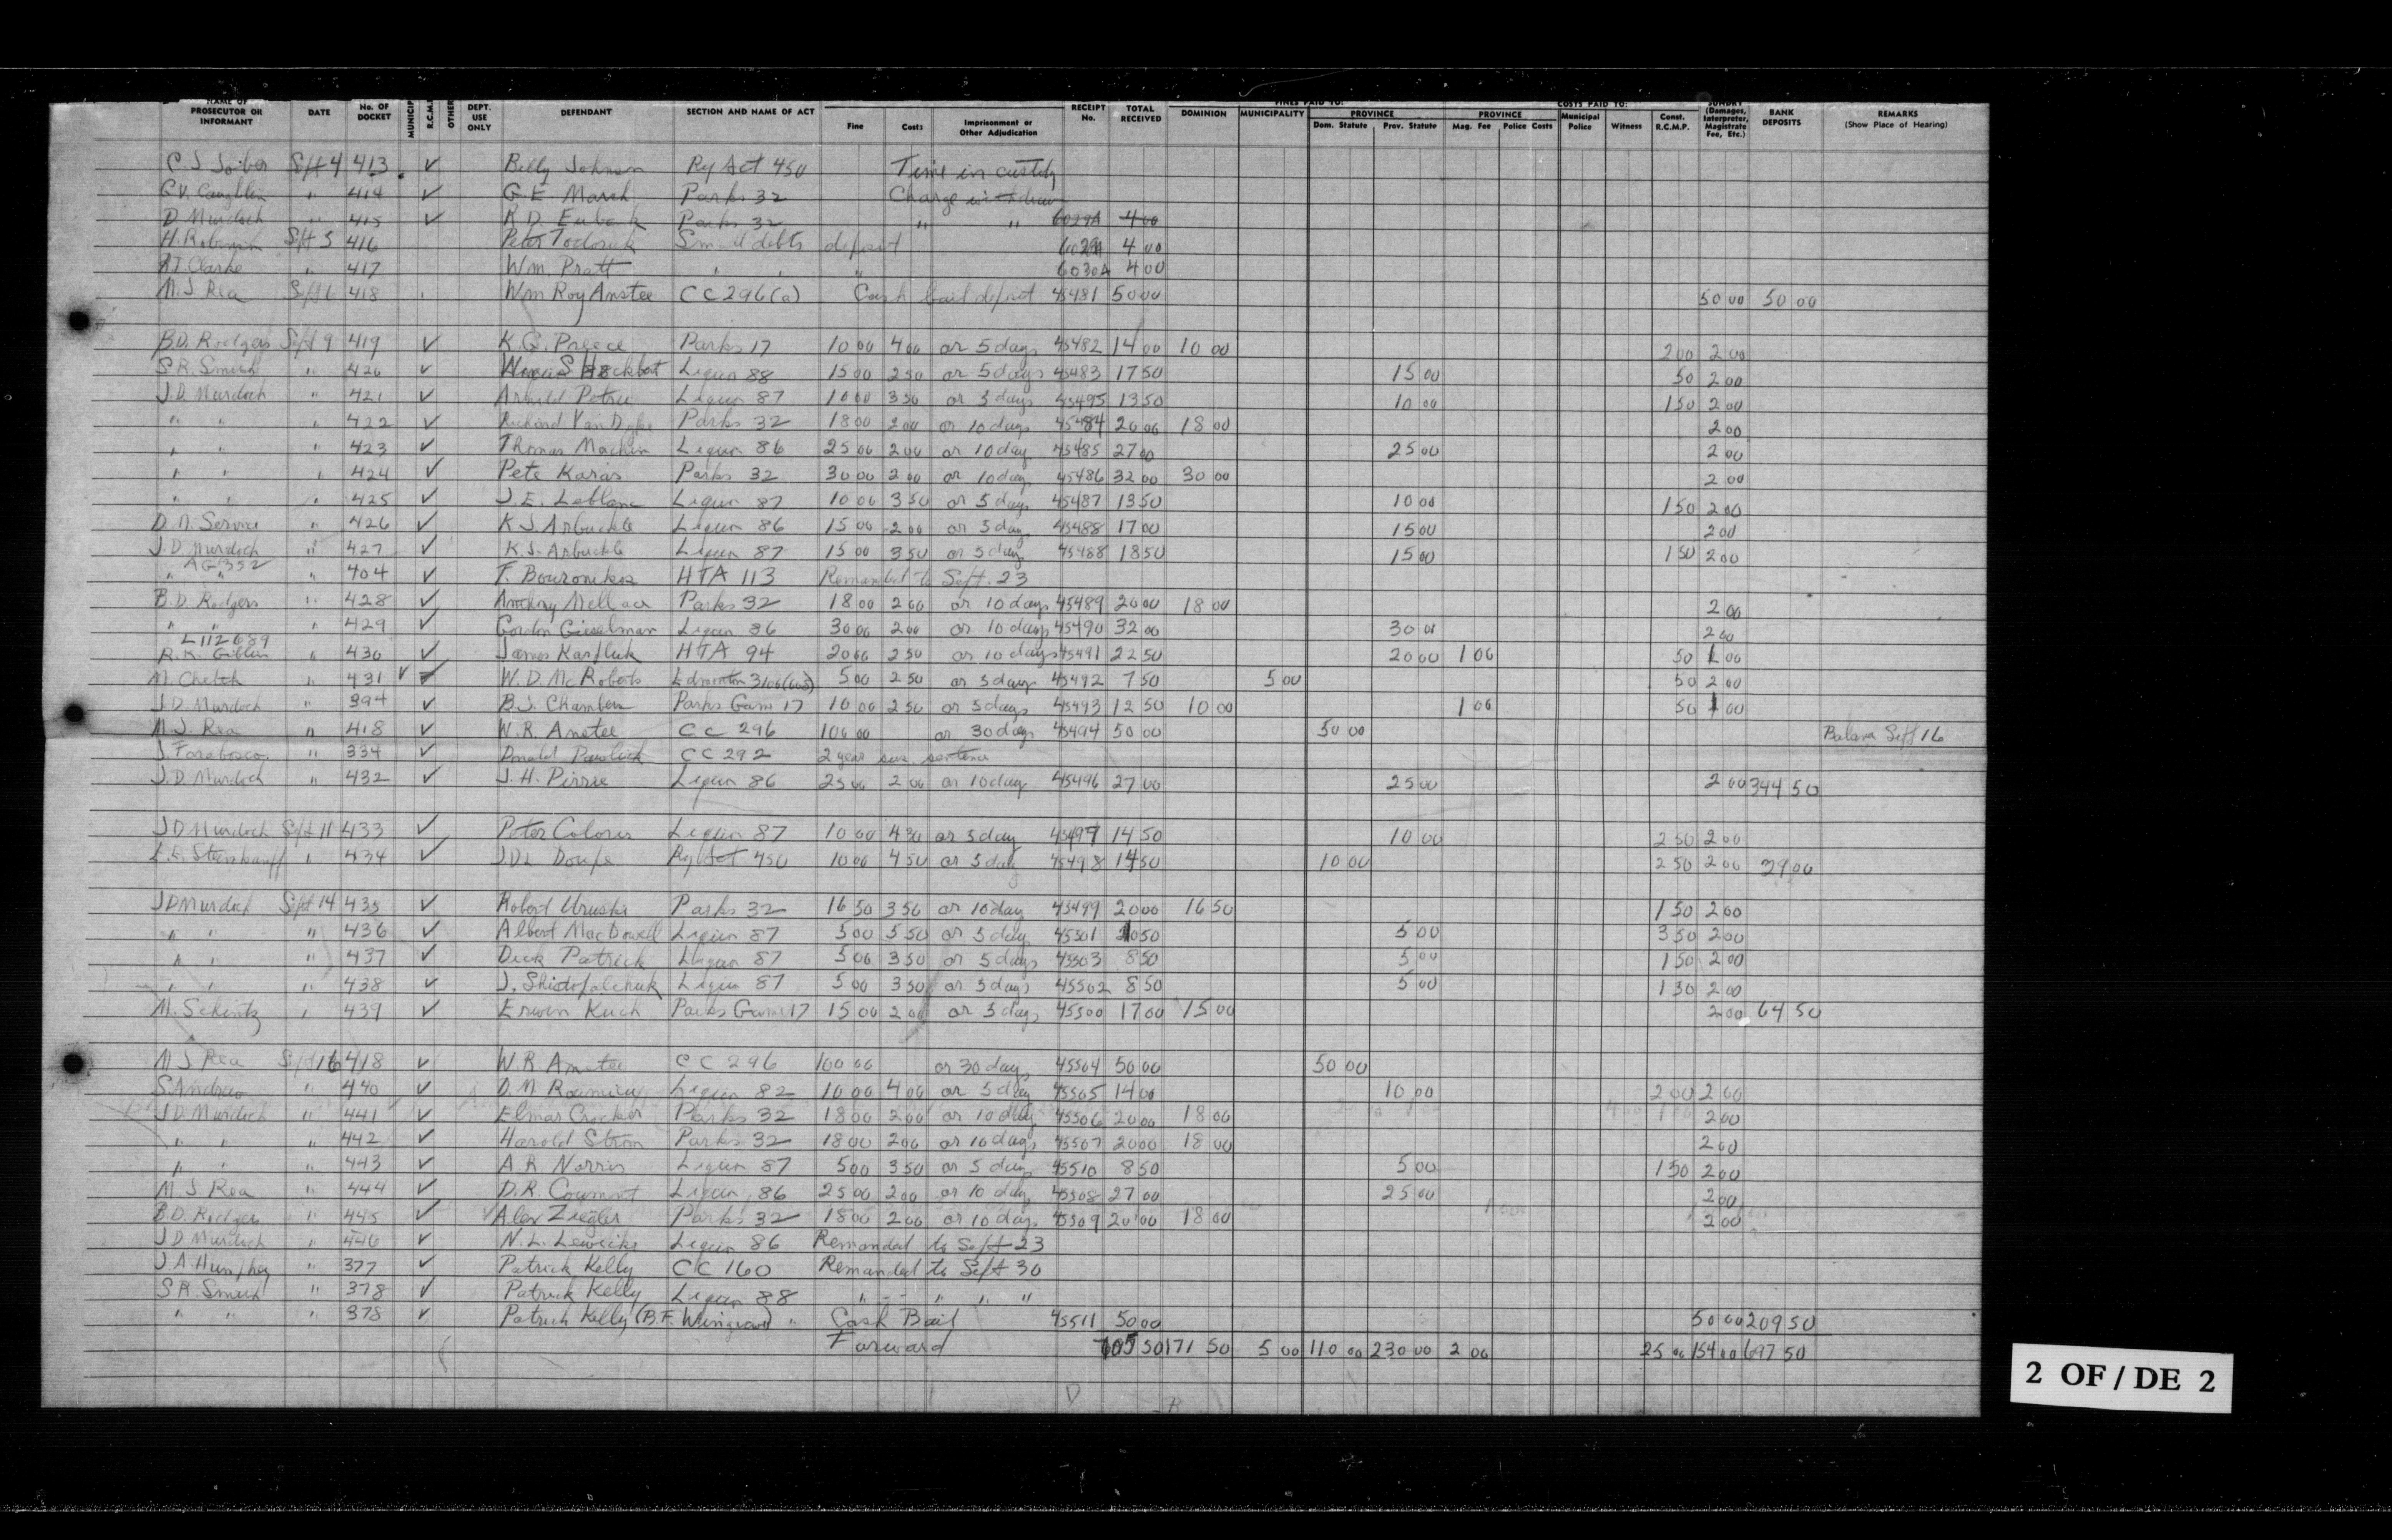 NAME OF PROSECUTOR OR INFORMANT DATE No. OF DOCKET MUNICIP R.C.M.P. OTHER DEPT. USE ONLY DEFENDANT SECTION AND NAME OF ACT Fine Costs Imprisonment or Other Adjudication RECEIPT No. TOTAL RECEIVED FINES PAID TO: DOMINION MUNICIPALITY PROVINCE Dom. Statute Prov. Statute COSTS PAID TO: PROVINCE Mag. Fee Police Costs Municipal Police Witness Const. R.C.M.P. SUNDRY (Damages, Interpreter, Magistrate Fee, Etc.) BANK DEPOSITS REMARKS (Show Place of Hearing)
Sept 4 413 ✓ Billy Johnson Ry Act 450 Time in custody
" 414 ✓ G.E. Marsh Parks 32 Charge withdrawn
D Murdoch " 415 ✓ R D Eubank Parks 32 " " 6029A 4 00
Sept 5 416 Peter Small debts deposit 6029A 4 00
A J Clarke " 417 Wm. Pratt " " " 6030A 4 00
M. J. Rea Sept 6 418 Wm Roy Anstee CC 296 (a) Cash bail deposit 45481 50 00 50 00 50 00
B.D. Rodgers Sept 9 419 ✓ K.G. Preece Parks 17 10 00 4 00 or 5 days 45482 14 00 10 00 2 00 2 00
S R. Smith " 420 ✓ Liquor 88 15 00 2 50 or 5 days 45483 17 50 15 00 50 2 00
J.D. Murdoch " 421 ✓ Arnold Petrie Liquor 87 10 00 3 50 or 5 days 45495 13 50 10 00 1 50 2 00
" " " 422 ✓ Richard Van Dyke Parks 32 18 00 2 00 or 10 days 45484 20 00 18 00 2 00
" " " 423 ✓ Thomas Machin Liquor 86 25 00 2 00 or 10 day 45485 27 00 25 00 2 00
" " " 424 ✓ Pete Karas Parks 32 30 00 2 00 or 10 day 45486 32 00 30 00 2 00
" " " 425 ✓ J.E. Leblanc Liquor 87 10 00 3 50 or 5 days 45487 13 50 10 00 1 50 2 00
D.N. Service " 426 ✓ K J. Arbuckle Liquor 86 15 00 2 00 or 5 day 45488 17 00 15 00 2 00
J.D Murdoch " 427 ✓ K.J. Arbuckle Liquor 87 15 00 3 50 or 5 days 45488 18 50 15 00 1 50 2 00
AG 352
" " " 404 ✓ HTA 113 Remanded to Sept. 23
B.D. Rodgers " 428 ✓ Anthony Parks 32 18 00 2 00 or 10 days 45489 20 00 18 00 2 00
" " " 429 ✓ Gordon Gieselman Liquor 86 30 00 2 00 or 10 days 45490 32 00 30 00 2 00
L112689
R.K. Giblin " 430 ✓ James HTA 94 20 00 2 50 or 10 days 45491 22 50 20 00 1 00 50 1 00
M. " 431 ✓ W.D. McRoberts Edmonton 5 00 2 50 or 5 days 45492 7 50 5 00 50 2 00
J.D. Murdoch " 394 ✓ B.J. Chambers Parks Game 17 10 00 2 50 or 5 days 45493 12 50 10 00 1 00 50 1 00
M.J. Rea " 418 ✓ W.R. Anstee C C 296 100 00 or 30 days 45494 50 00 50 00 Balance Sept 16
J. " 334 ✓ Donald CC 292 2 year sus. sentence
J.D. Murdoch " 432 ✓ J.H. Pirrie Liquor 86 25 00 2 00 or 10 day 45496 27 00 25 00 2 00 344 50
J D Murdoch Sept 11 433 ✓ Peter Liquor 87 10 00 4 50 or 5 day 45497 14 50 10 00 2 50 2 00
" 434 ✓ J.D.L Doupe Ry Act 450 10 00 4 50 or 5 day 45498 14 50 10 00 2 50 2 00 29 00
J D Murdoch Sept 14 435 ✓ Robert Parks 32 16 50 3 50 or 10 day 45499 20 00 16 50 1 50 2 00
" " " 436 ✓ Albert MacDowell Liquor 87 5 00 5 50 or 5 day 45501 10 50 5 00 3 50 2 00
" " " 437 ✓ Dick Patrick Liquor 87 5 00 3 50 or 5 days 45503 8 50 5 00 1 50 2 00
" " " 438 ✓ J. Liquor 87 5 00 3 50 or 5 days 45502 8 50 5 00 1 50 2 00
M. Schintz " 439 ✓ Erwin Kuch Parks Game 17 15 00 2 00 or 5 days 45500 17 00 15 00 2 00 64 50
M J Rea Sept 16 418 ✓ W.R. Anstee C C 296 100 00 or 30 days 45504 50 00 50 00
S Andrew " 440 ✓ D.N. Liquor 82 10 00 4 00 or 5 day 45505 14 00 10 00 2 00 2 00
J D. Murdoch " 441 ✓ Elmer Crocker Parks 32 18 00 2 00 or 10 day 45506 20 00 18 00 2 00
" " " 442 ✓ Harold Strom Parks 32 18 00 2 00 or 10 days 45507 20 00 18 00 2 00
" " " 443 ✓ A R Norris Liquor 87 5 00 3 50 or 5 days 45510 8 50 5 00 1 50 2 00
M J. Rea " 444 ✓ D.R. Liquor 86 25 00 2 00 or 10 day 45508 27 00 25 00 2 00
B D. Rodgers " 445 ✓ Alex Ziegler Parks 32 18 00 2 00 or 10 days 45509 20 00 18 00 2 00
J D Murdoch " 446 ✓ N.L. Liquor 86 Remanded to Sept 23
J.A. Humphrey " 377 ✓ Patrick Kelly CC 160 Remanded to Sept 30
S R. Smith " 378 ✓ Patrick Kelly Liquor 88 " " " " "
" " " 378 ✓ Patrick Kelly (B.F. Wingrave) " Cash Bail 45511 50 00 50 00 209 50
Forward 705 50 171 50 5 00 110 00 230 00 2 00 25 00 154 00 697 50
2 OF / DE 2